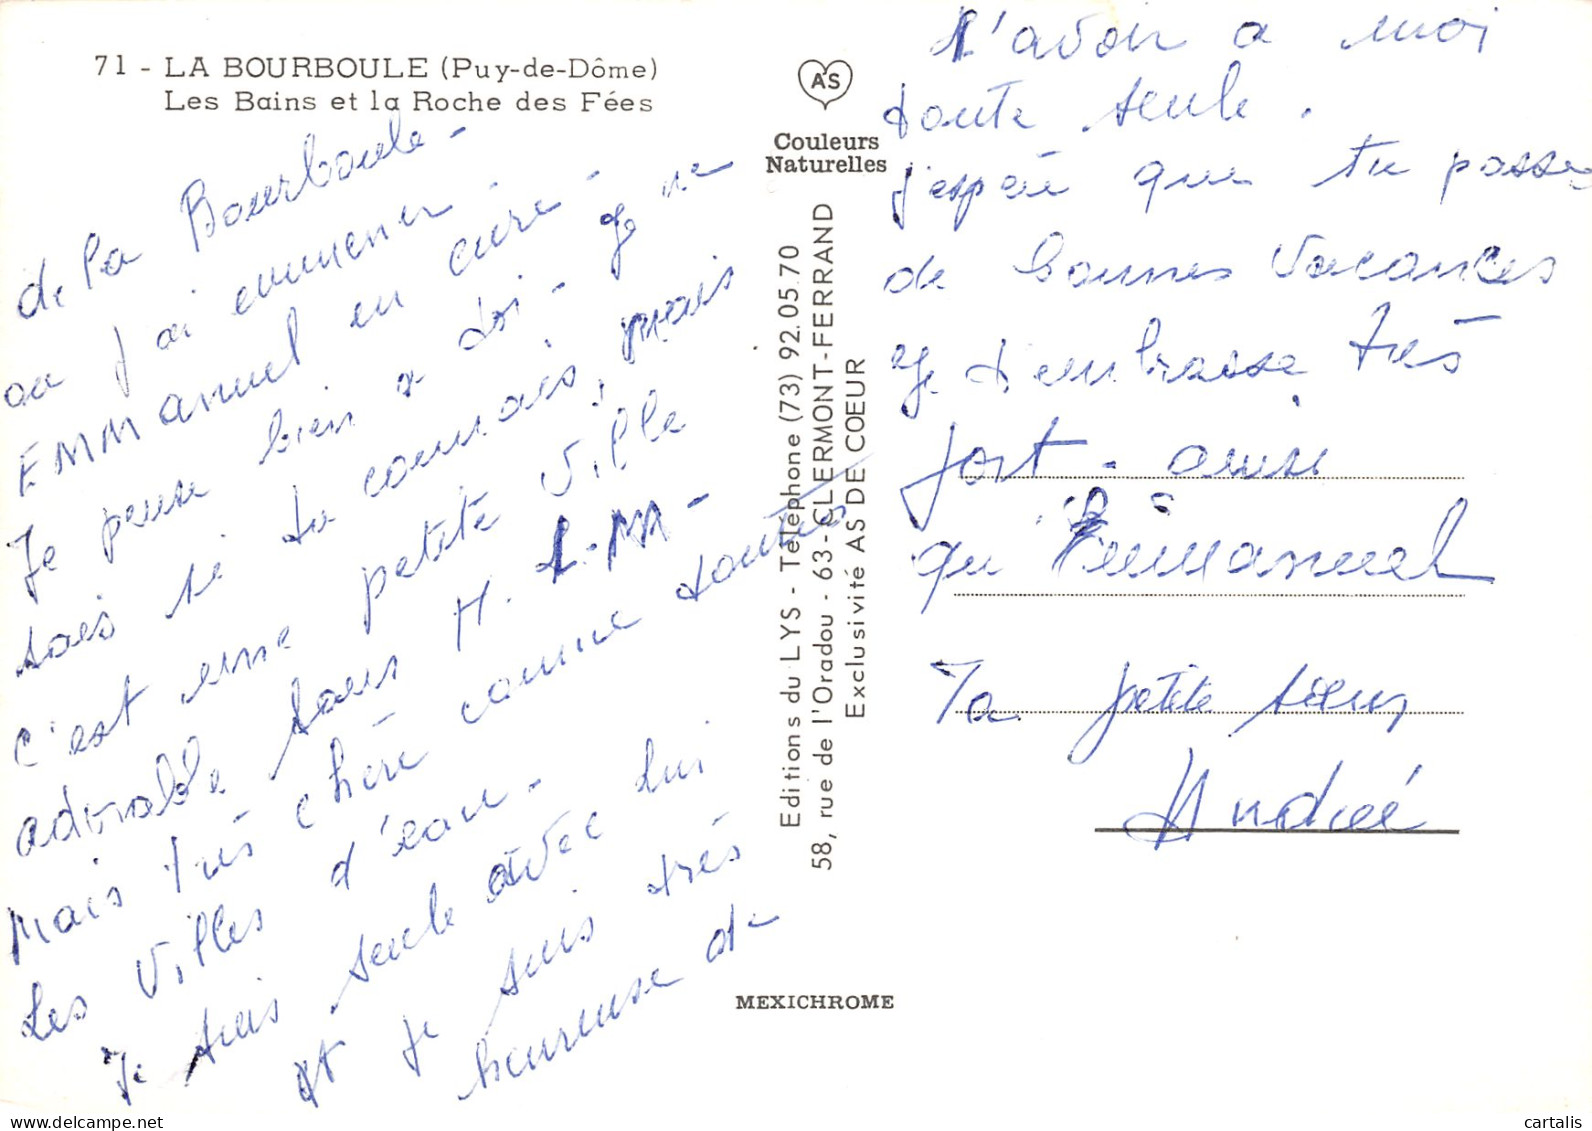 71 - LA BOURBOULE (Puy-de-Dôme)
Les Bains et la Roche des Fées
de la Bourboule -
ou j'ai emmener
EMMANUEL en cure -
Je pense bien a toi - Je ne
sais si tu connais, mais
c'est une petite ville
adorable sous H. L. M -
Mais très chère comme toutes
Les Villes d'eau -
Je suis seule avec lui
et je suis très
heureuse de
AS
Couleurs
Naturelles
Editions du LYS - Téléphone (73) 92.05.70
58, rue de l'Oradou - 63 - CLERMONT-FERRAND
Exclusivité AS DE COEUR
MEXICHROME
L'avoir a moi
toute seule.
j'espère que tu passes
de bonnes vacances
Je t'embrasse très
fort - ainsi
qu'Emmanuel
Ta petite sœur
Andrée
cartalis